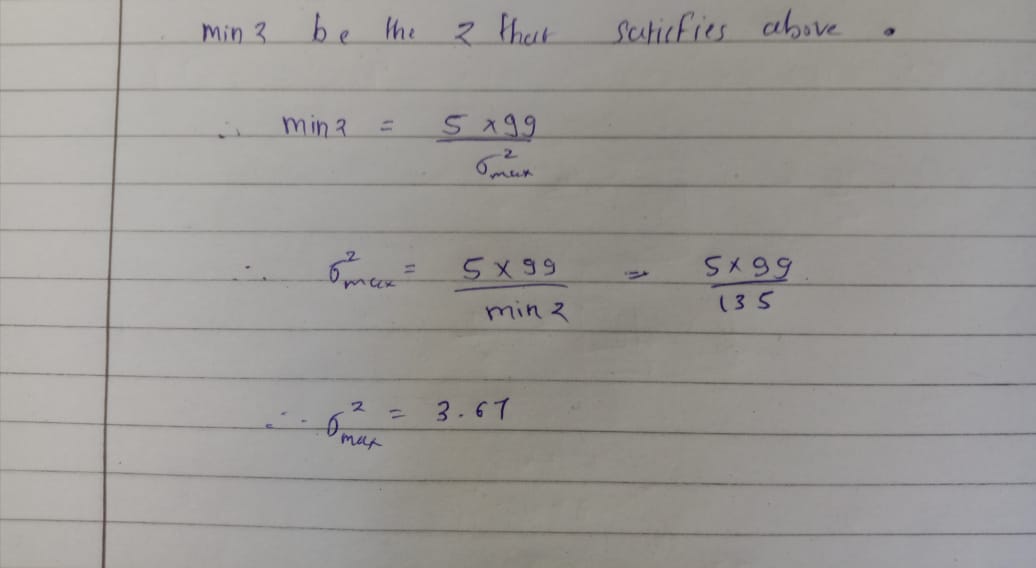 min z be the z that saticfies above .
∴ min z = 5 × 99 / σ²max
∴ σ²max = 5 × 99 / min z = 5 × 99 / 135
∴ σ²max = 3.67